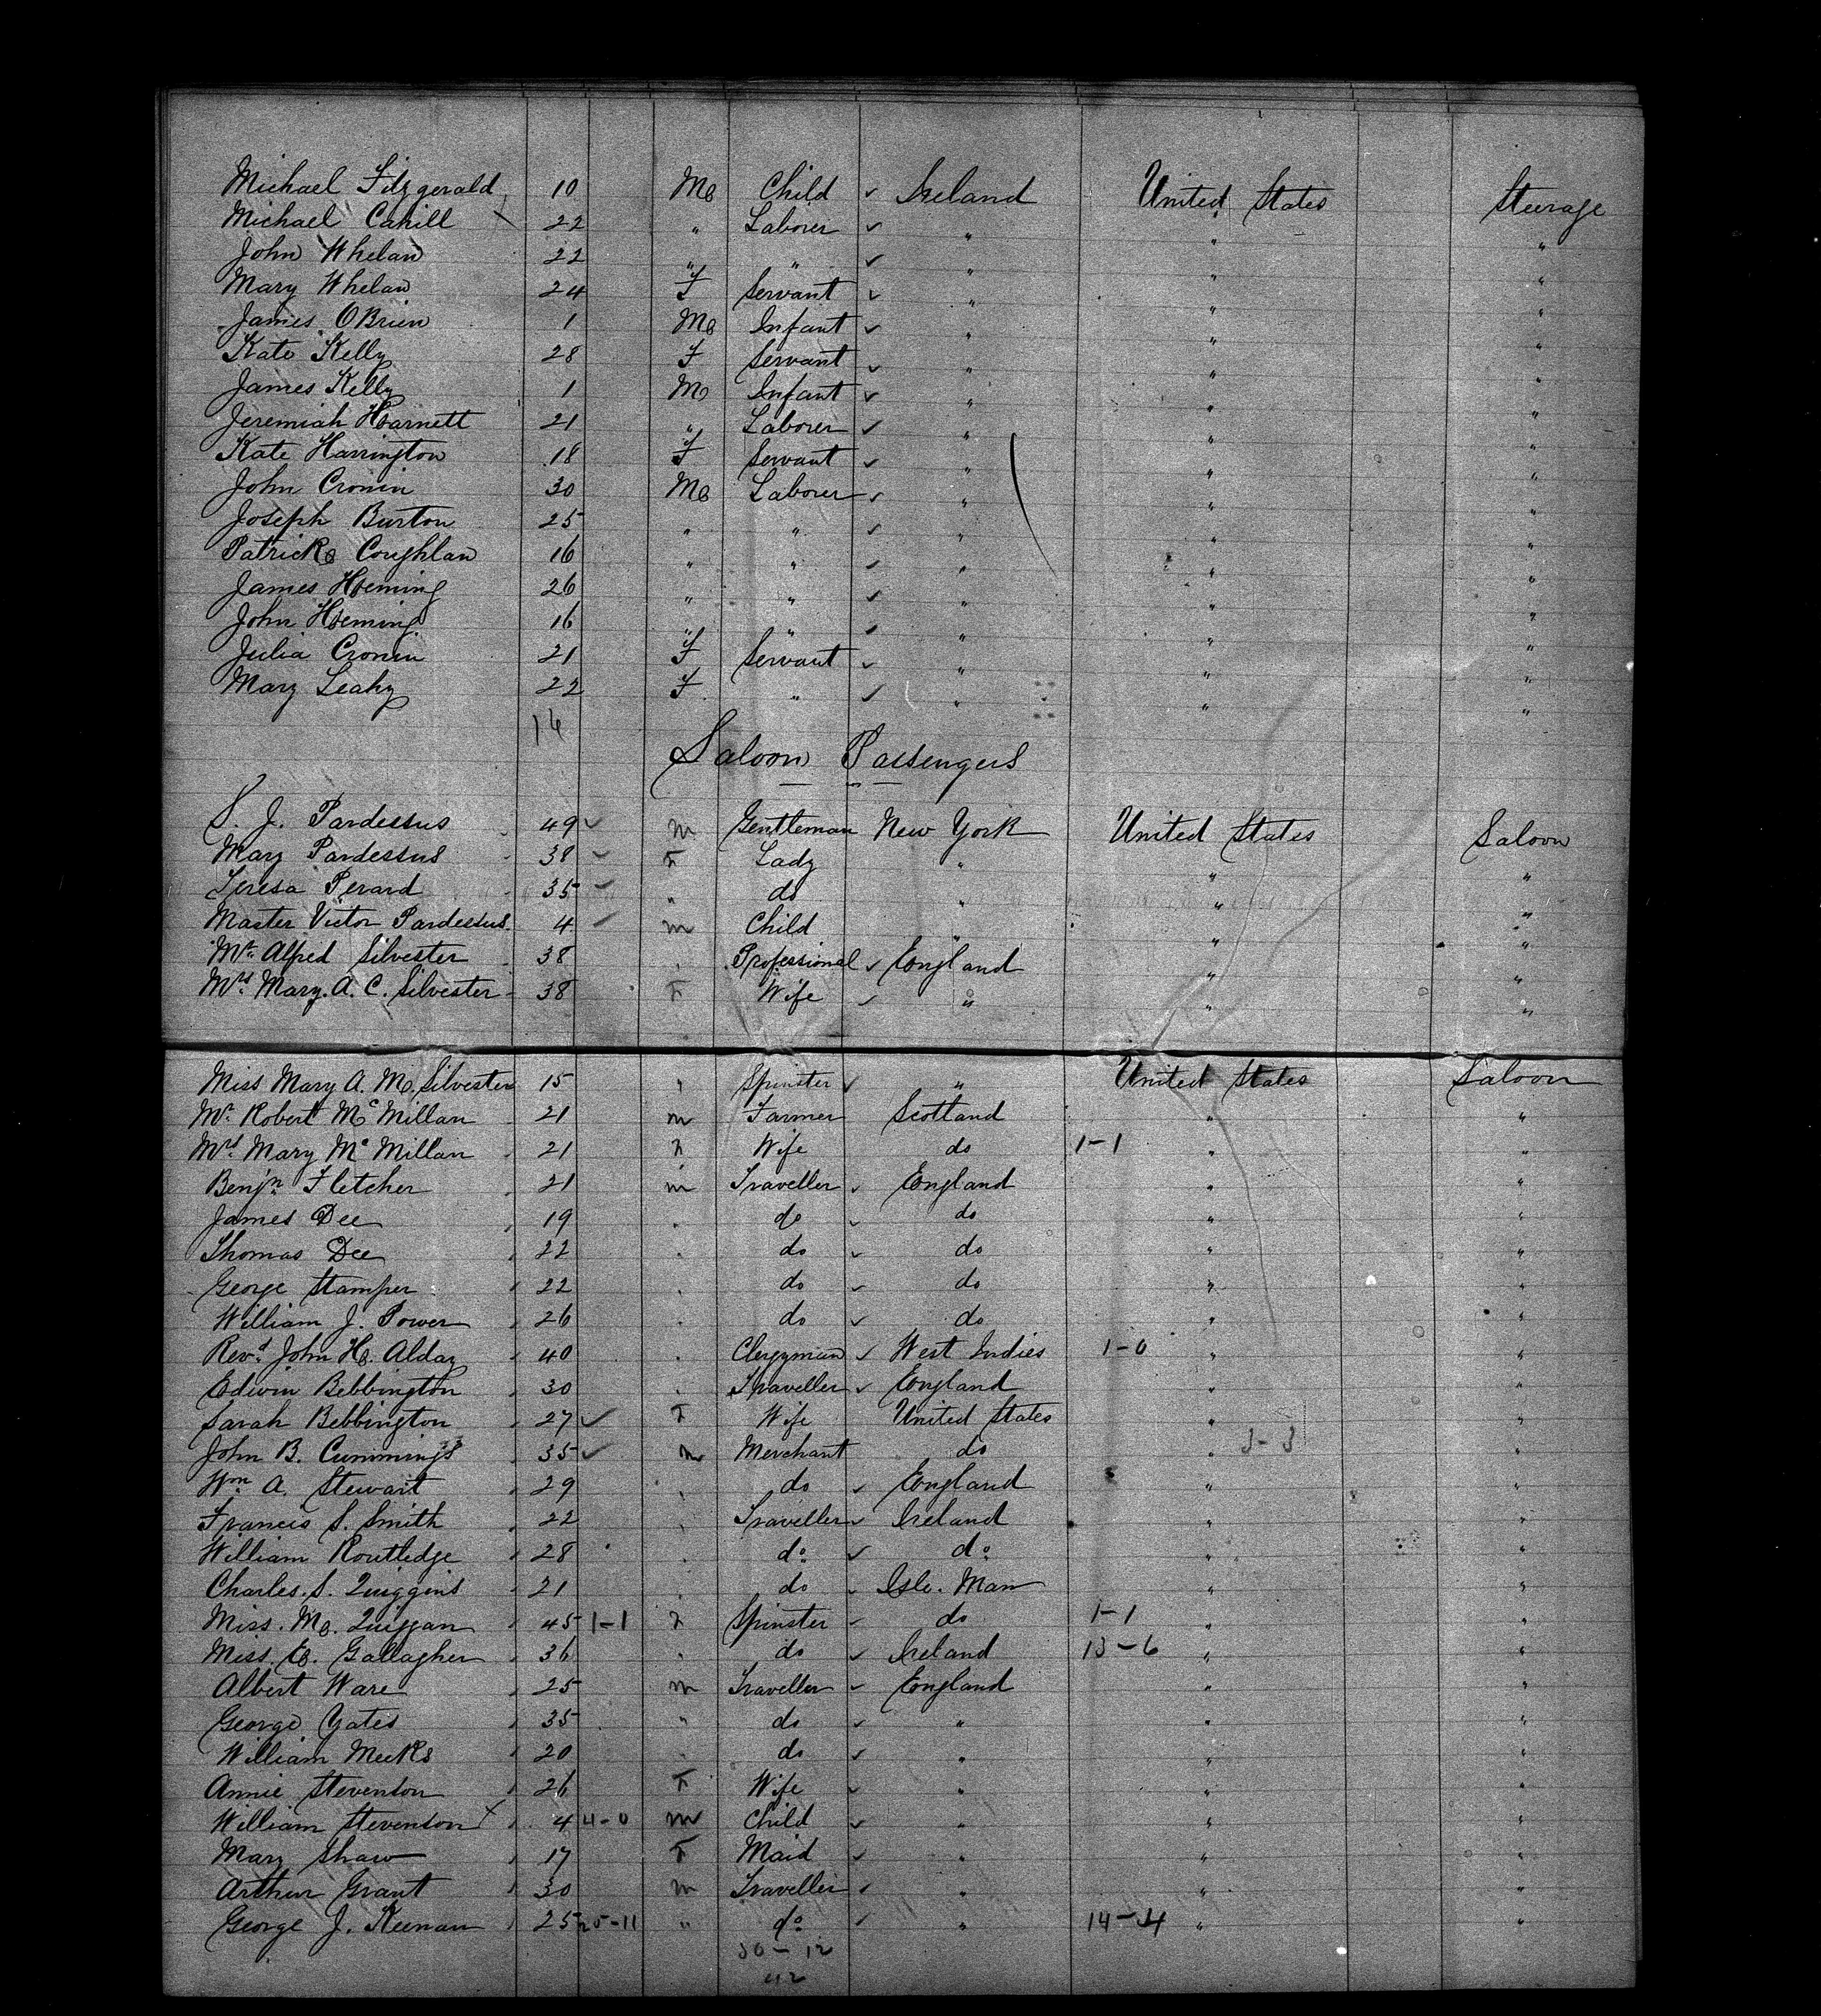 Michael Fitzgerald 10 M Child ✓ Ireland United States Steerage
Michael Cahill 22 " Laborer ✓ " " "
John Whelan 22 " " ✓ " " "
Mary Whelan 24 F Servant ✓ " " "
James OBrien 1 M Infant ✓ " " "
Kate Kelly 28 F Servant ✓ " " "
James Kelly 1 M Infant ✓ " " "
Jeremiah Harnett 21 " Laborer ✓ " " "
Kate Harrington 18 F Servant ✓ " " "
John Cronin 30 M Laborer ✓ " " "
Joseph Burton 25 " " ✓ " " "
Patrick Coughlan 16 " " ✓ " " "
James Heming 26 " " ✓ " " "
John Heming 16 " " ✓ " " "
Julia Cronin 21 F Servant ✓ " " "
Mary Leahy 22 F " ✓ " " "
16
Saloon Passengers
S. J. Pardessus 49 ✓ m Gentleman New York United States Saloon
Mary Pardessus 38 ✓ F Lady " " "
Teresa Perard 35 ✓ " do " " "
Master Victor Pardessus 4 ✓ m Child " " "
Mr. Alfred Silvester 38 " Professional ✓ England " "
Mrs. Mary. A. C. Silvester 38 F Wife ✓ " " "
Miss Mary A. M. Silvester 15 " Spinster ✓ " United States Saloon
Mr. Robert McMillan 21 m Farmer Scotland " "
Mrs. Mary McMillan 21 F Wife do 1-1 " "
Benjn. Fletcher 21 m Traveller ✓ England " "
James Dee 19 " do ✓ do " "
Thomas Dee 22 " do ✓ do " "
George Stamper 22 " do ✓ do " "
William J. Power 26 " do ✓ do " "
Revd. John H. Alday 40 " Clergyman ✓ West Indies 1-0 " "
Edwin Bebbington 30 " Traveller ✓ England " "
Sarah Bebbington 27 ✓ F Wife United States " "
John B. Cummings 35 ✓ m Merchant do " 3-3 "
Wm A. Stewart 29 " do ✓ England " "
Francis S. Smith 22 " Traveller ✓ Ireland " "
William Routledge 28 " do ✓ do " "
Charles. S. Quiggins 21 do ✓ Isle. Man " "
Miss. M. Quiggan 45 1-1 F Spinster ✓ do 1-1 " "
Miss. E. Gallagher 36 " do ✓ Ireland 13-6 " "
Albert Ware 25 m Traveller ✓ England " "
George Yates 35 " do ✓ " " "
William Meeks 20 " do ✓ " " "
Annie Stevenson 26 F Wife ✓ " " "
William Stevenson X 4 4-0 m Child ✓ " " "
Mary Shaw 17 F Maid ✓ " " "
Arthur Grant 30 m Traveller ✓ " " "
George J. Keenan 25 25-11 " do ✓ " 14-4 " "
30-12
42